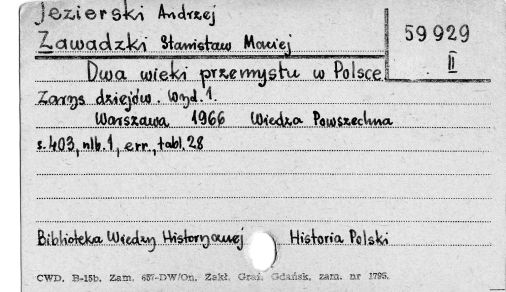 Jezierski Andrzej
Zawadzki Stanisław Maciej
59929
II
Dwa wieki przemysłu w Polsce
Zarys dziejów. Wyd. 1.
Warszawa 1966 Wiedza Powszechna
s. 403, nlb. 1, err., tabl. 28
Biblioteka Wiedzy Historycznej Historia Polski
CWD. B-15b. Zam. 657-DW/On. Zakł. Graf. Gdańsk, zam. nr 1795.